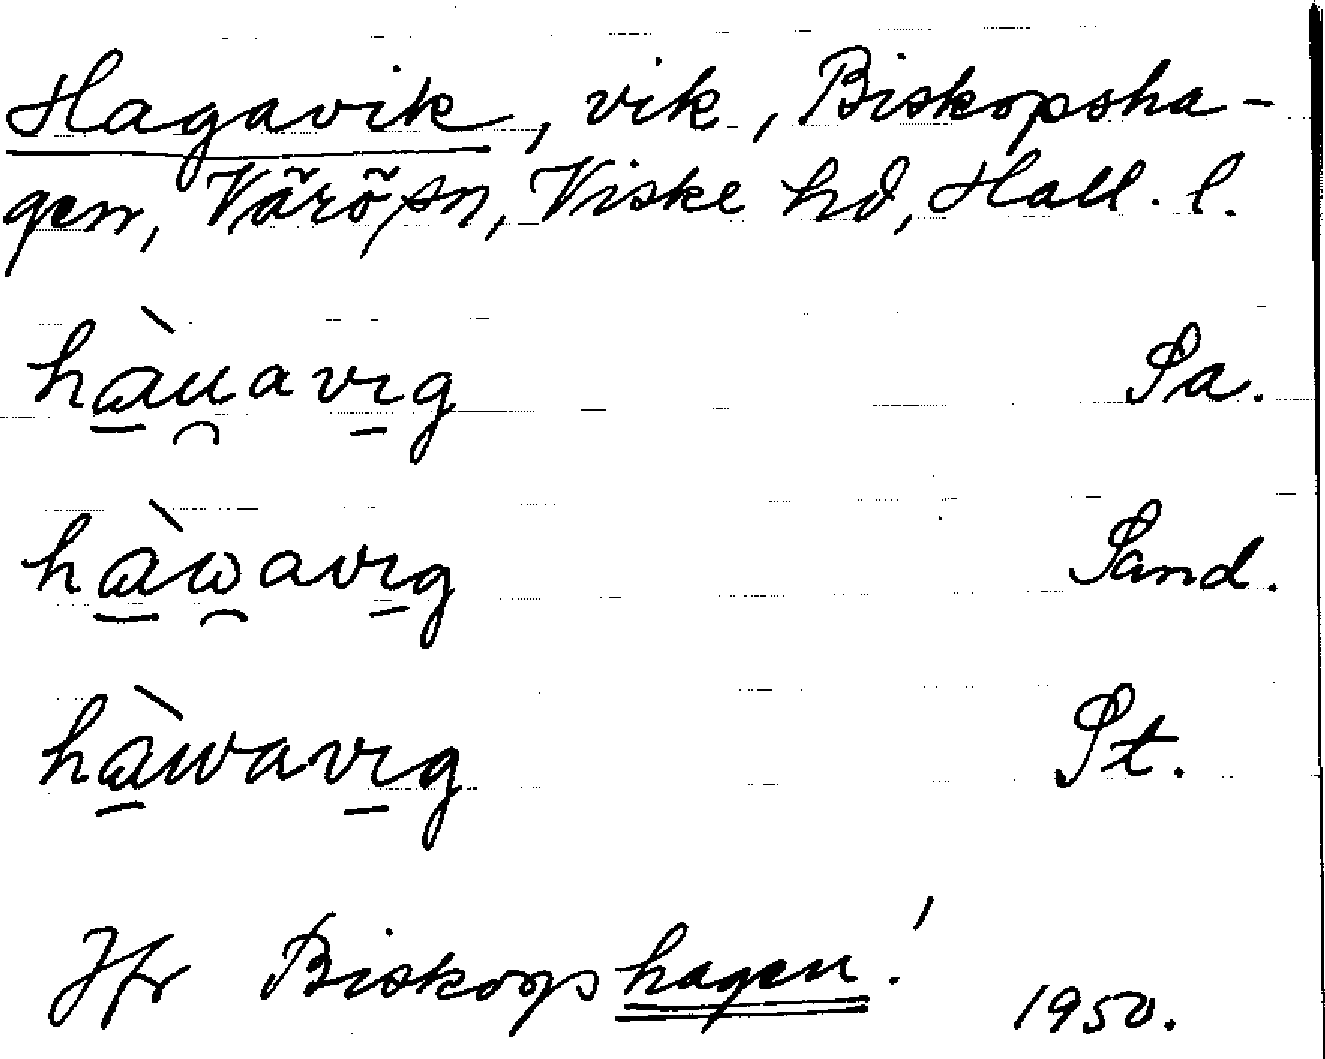 Hagavik, vik, Biskopsha-
gen, Värö sn, Viske hd, Hall. l.
hàu̯avıg Sa.
hàω̯avıg Sand.
hàwavıg St.
Jfr Biskopshagen!
1950.